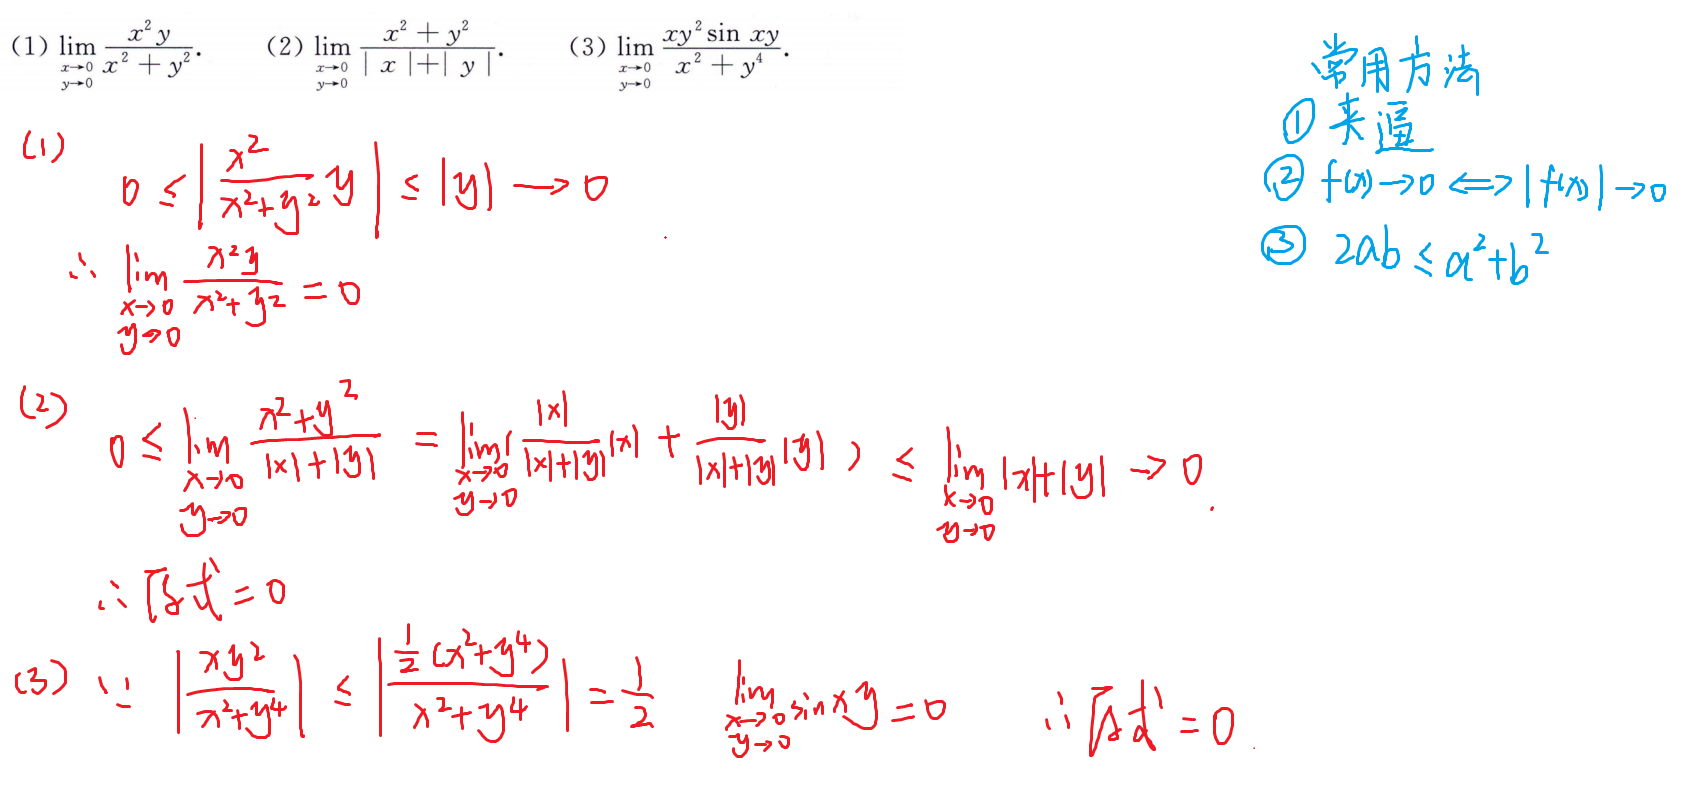 (1) lim_{x→0, y→0} x²y / (x² + y²). (2) lim_{x→0, y→0} (x² + y²) / (|x|+|y|). (3) lim_{x→0, y→0} xy² sin xy / (x² + y⁴).
常用方法
① 夹逼
② f(x)→0 ⟺ |f(x)|→0
③ 2ab ≤ a²+b²
(1)
0 ≤ | x²/(x²+y²) y | ≤ |y| → 0
∴ lim_{x→0, y→0} x²y/(x²+y²) = 0
(2)
0 ≤ lim_{x→0, y→0} (x²+y²)/(|x|+|y|) = lim_{x→0, y→0} ( |x|/(|x|+|y|) |x| + |y|/(|x|+|y|) |y| ) ≤ lim_{x→0, y→0} |x|+|y| → 0.
∴ 原式 = 0
(3) ∵ | xy²/(x²+y⁴) | ≤ | ½(x²+y⁴)/(x²+y⁴) | = 1/2 lim_{x→0, y→0} sin xy = 0 ∴ 原式 = 0.